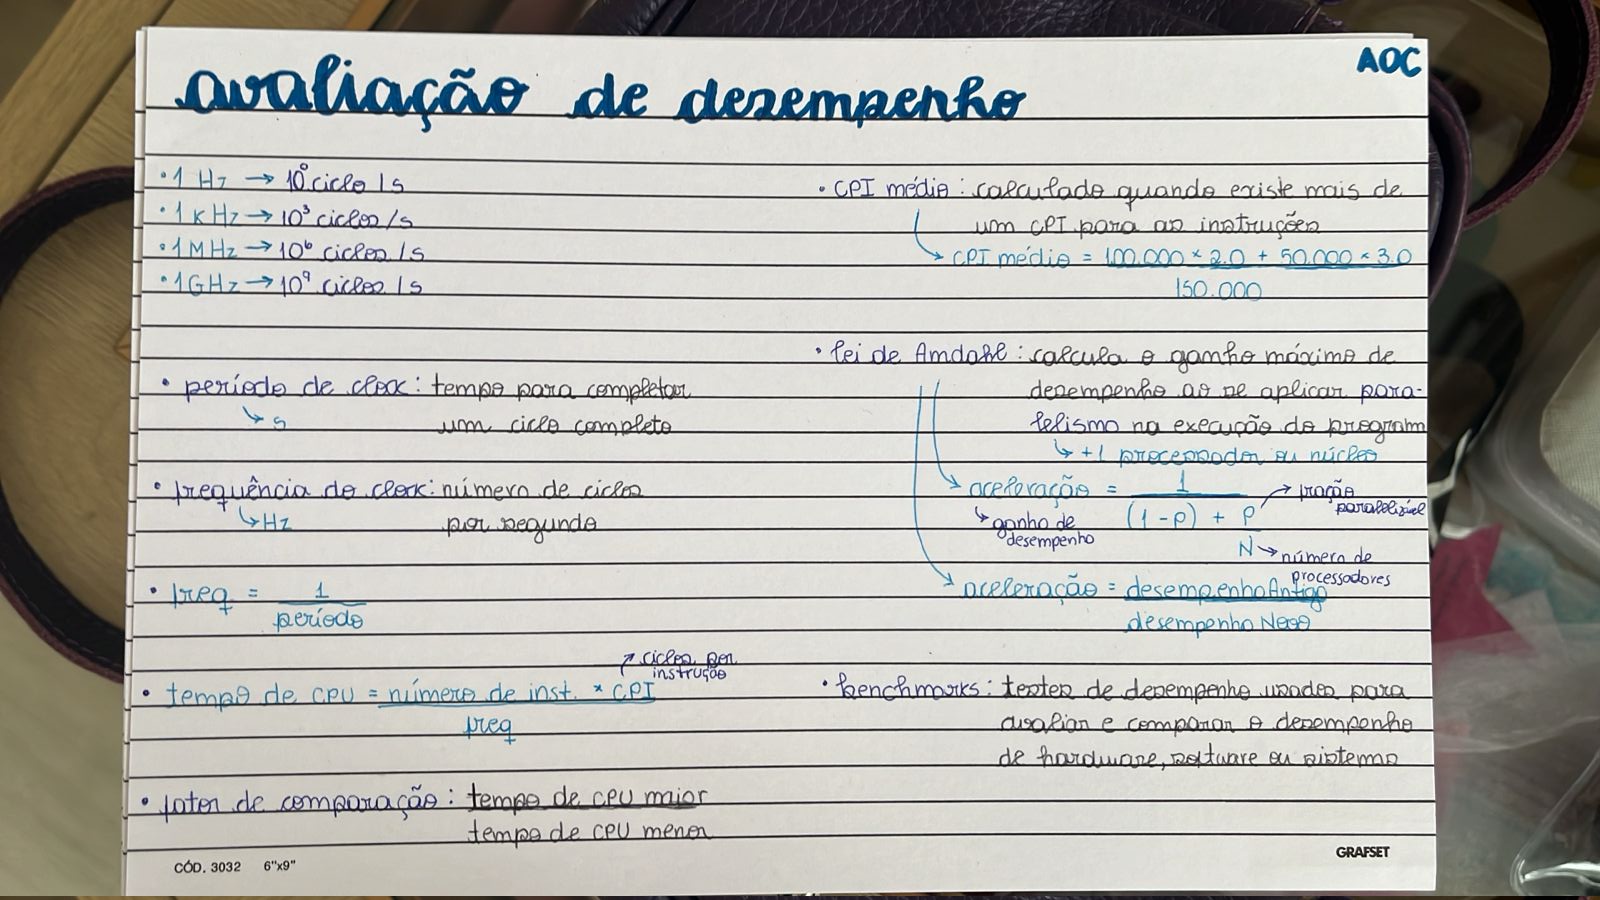 AOC
avaliação de desempenho
• 1 Hz → 10⁰ ciclo/s
• 1 KHz → 10³ ciclos/s
• 1 MHz → 10⁶ ciclos/s
• 1 GHz → 10⁹ ciclos/s
• período de clock: tempo para completar
↳ s um ciclo completo
• frequência do clock: número de ciclos
↳ Hz por segundo
• freq = 1
período
↗ ciclos por
instrução
• tempo de CPU = número de inst. * CPI
freq
• fator de comparação: tempo de CPU maior
tempo de CPU menor
• CPI médio: calculado quando existe mais de
um CPI para as instruções
→ CPI médio = 100.000 * 2.0 + 50.000 * 3.0
150.000
• lei de Amdahl: calcula o ganho máximo de
desempenho ao se aplicar para-
lelismo na execução do program
↳ +1 processador ou núcleo
→ aceleração = 1 → fração
paralelizável
↳ ganho de (1 - P) + P
desempenho
N → número de
processadores
→ aceleração = desempenhoAntigo
desempenho Novo
• benchmarks: testes de desempenho usados para
avaliar e comparar o desempenho
de hardware, software ou sistema
CÓD. 3032 6"x9"
GRAFSET